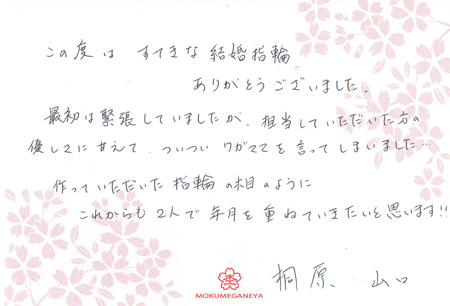 この度は すてきな 結婚指輪
ありがとうございました。
最初は緊張していましたが、担当していただいた方の
優しさに甘えて、ついつい ワガママを言ってしまいました…
作っていただいた 指輪の木目のように
これからも 2人で 年月を 重ねていきたいと思います!!
桐原、山口
MOKUMEGANEYA